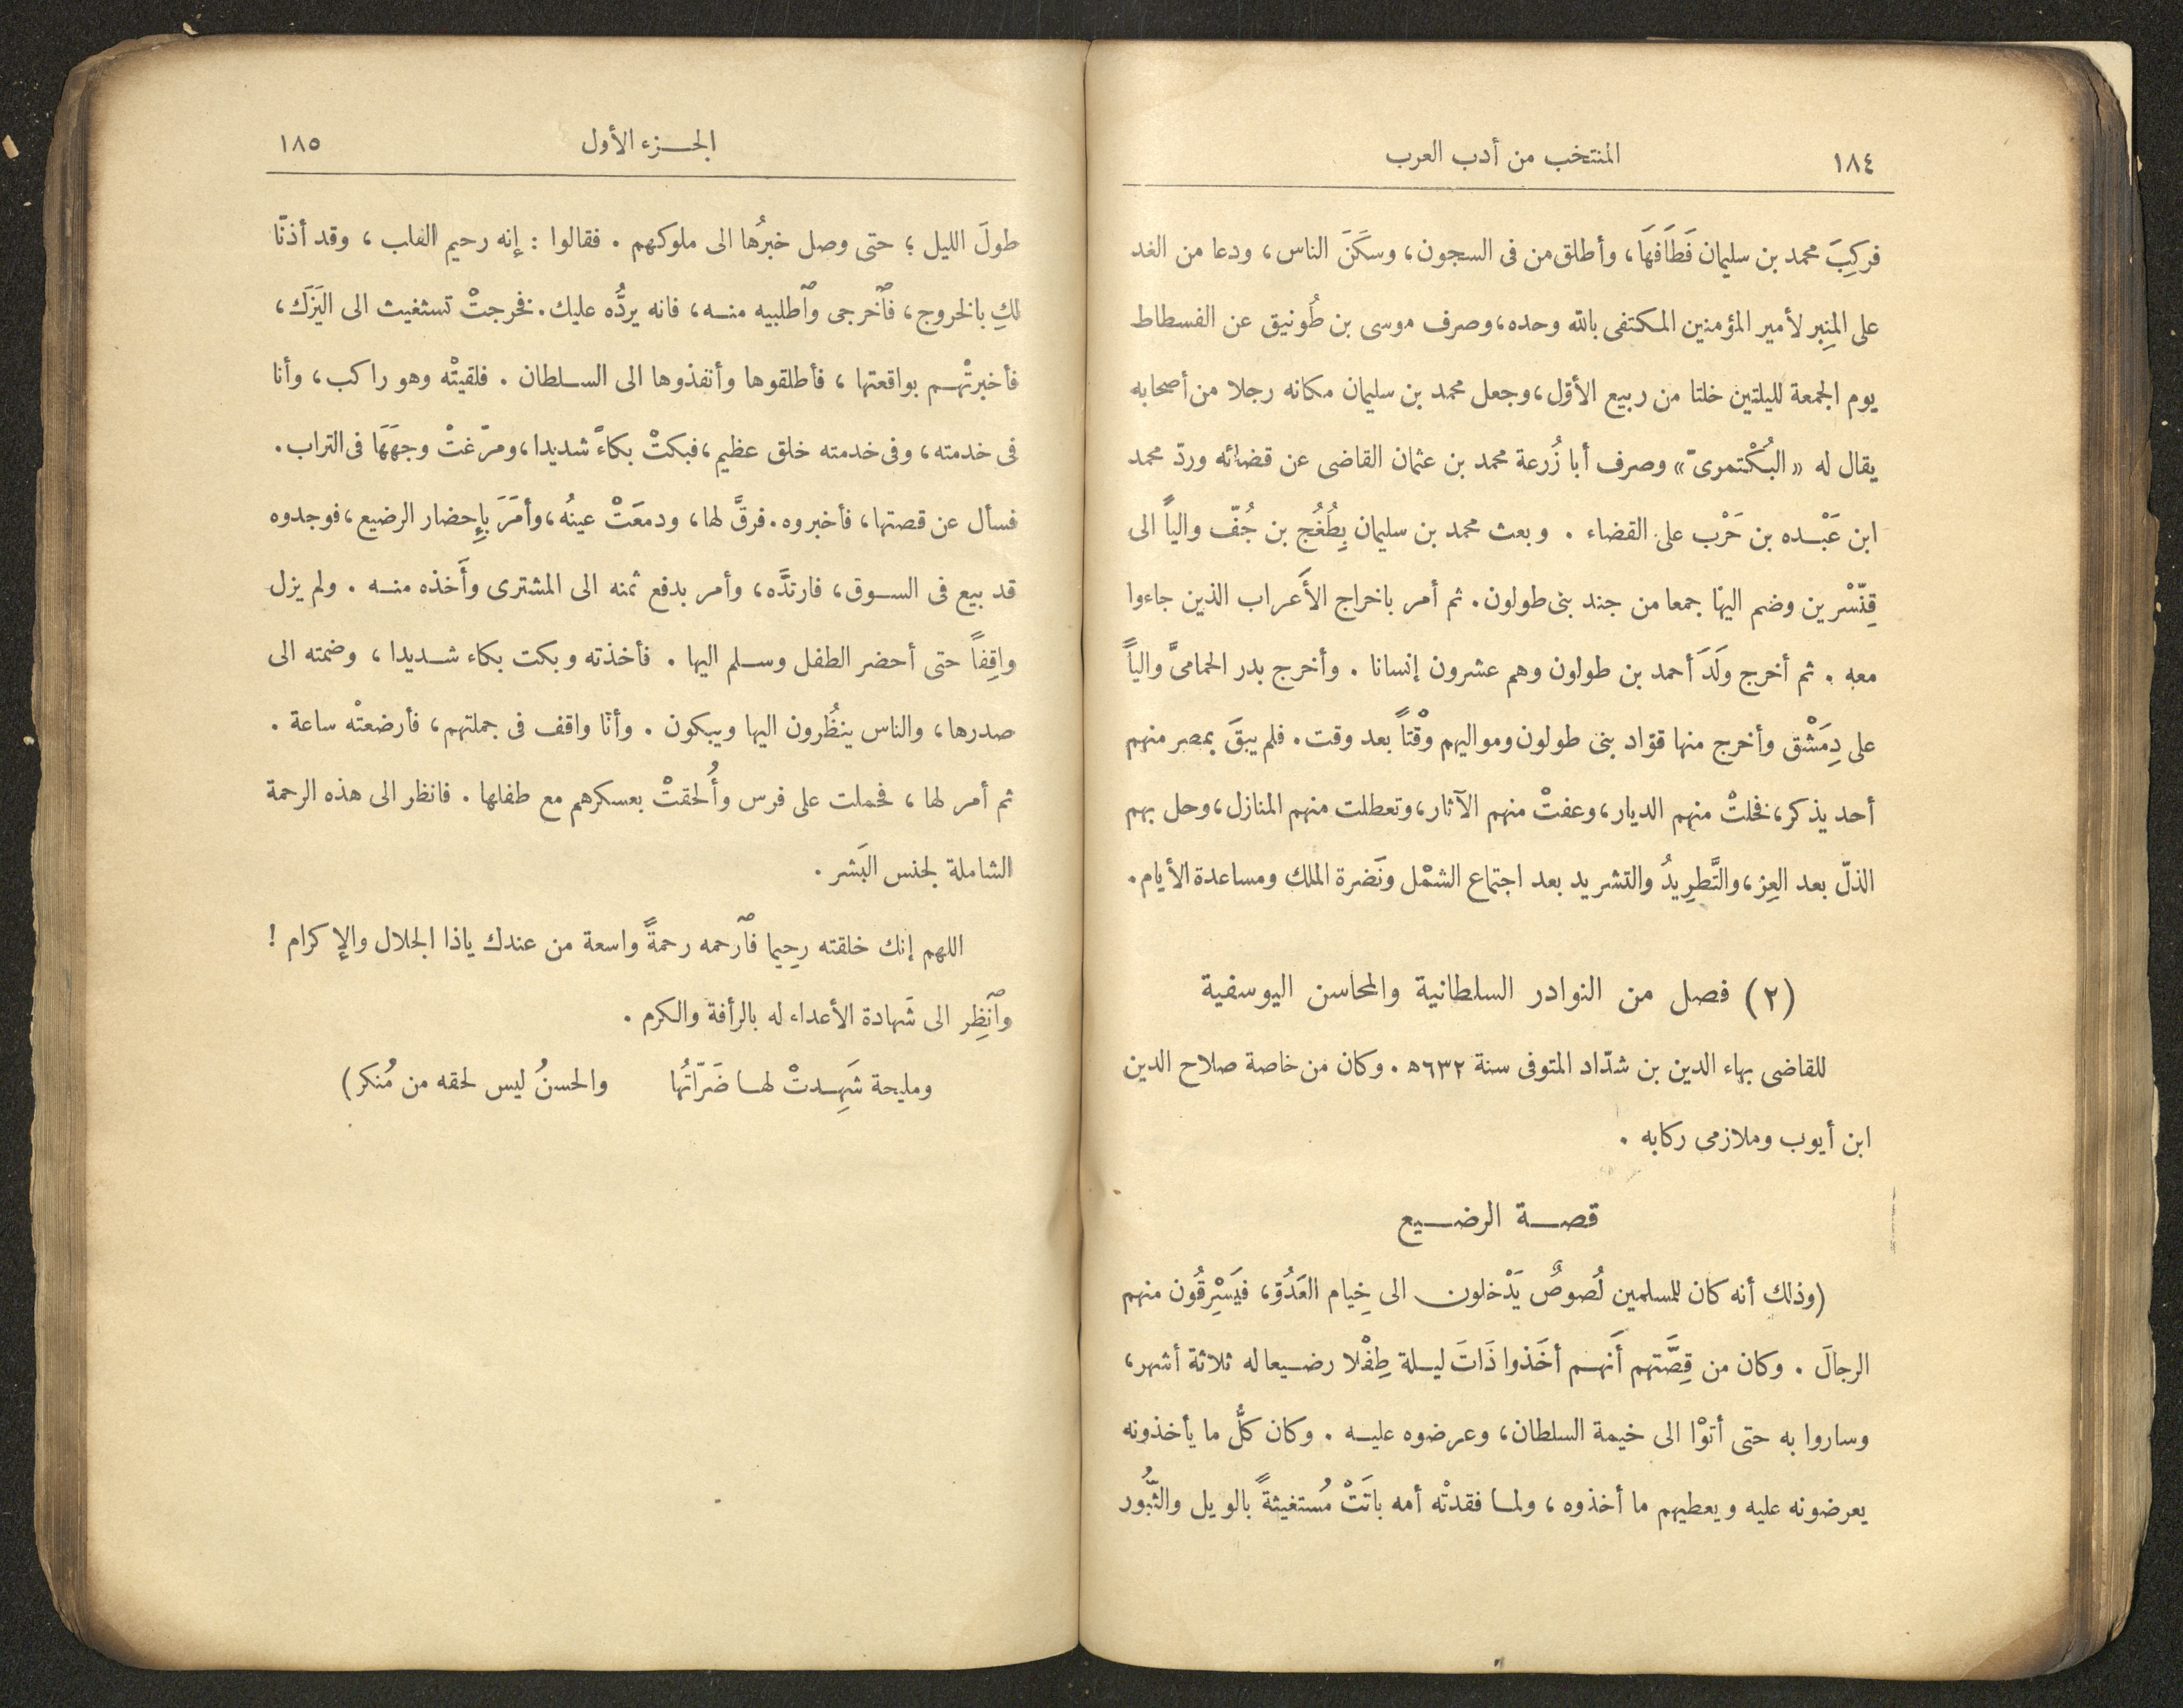 ١٨٤
المنتخب من أدب العرب
فركِبَ محمد بن سليمان فَطَافَهَا، وأطلق من فى السجون، وسكَنَ الناس، ودعا من الغد
على المِنبر لأمير المؤمنين المكتفى بالله وحده، وصرف موسى بن طُونيق عن الفسطاط
يوم الجمعة لليلتين خلتا من ربيع الأوّل، وجعل محمد بن سليمان مكانه رجلا من أصحابه
يقال له «البُكْتمرىّ» وصرف أبا زُرعة محمد بن عثمان القاضى عن قضائه وردّ محمد
ابن عَبْده بن حَرْب على القضاء . وبعث محمد بن سليمان بِطُغُج بن جُفّ والياً الى
قِنّسْرين وضم اليها جمعا من جند بنى طولون. ثم أمر باخراج الأَعراب الذين جاءوا
معه . ثم أخرج ولَدَ أحمد بن طولون وهم عشرون إنسانا . وأخرج بدر الحمامىَّ والياً
على دِمَشْق وأخرج منها قوّاد بنى طولون ومواليهم وقْتاً بعد وقت. فلم يبقَ بمصر منهم
أحد يذكر، فخلتْ منهم الديار، وعفتْ منهم الآثار، وتعطلت منهم المنازل، وحل بهم
الذلّ بعد العِز، والتَّطرِيدُ والتشريد بعد اجتماع الشمْل ونَضرة الملك ومساعدة الأيام.
(٢) فصل من النوادر السلطانية والمحاسن اليوسفية
للقاضى بهاء الدين بن شدّاد المتوفى سنة ٦٣٢ﻫ. وكان من خاصة صلاح الدين
ابن أيوب وملازمى ركابه .
قصة الرضيع
(وذلك أنه كان للمسلمين لُصوصٌ يَدْخلون الى خِيام العَدُوّ، فيَسْرِقُون منهم
الرجالَ . وكان من قِصَّتهم أَنهم أخَذوا ذَاتَ ليلة طِفْلا رضيعا له ثلاثة أشهر،
وساروا به حتى أتوْا الى خيمة السلطان، وعرضوه عليه . وكان كلُّ ما يأخذونه
يعرضونه عليه ويعطيهم ما أخذوه، ولما فقدتْه أمه باتَتْ مُستغيثةً بالويل والثُّبُور
الجزء الأول
١٨٥
طولَ الليل؛ حتى وصل خبرُها الى ملوكهم . فقالوا : إنه رحيم القلب، وقد أذنّا
لكِ بالخروج، فٱخرجى وٱطلبيه منه، فانه يردُّه عليك. فخرجتْ تستغيث الى اليَزَك،
فأخبرتْهم بواقعتها، فأطلقوها وأنفذوها الى السلطان . فلقيتْه وهو راكب، وأنا
فى خدمته، وفى خدمته خلق عظيم، فبكتْ بكاءً شديدا، ومرّغتْ وجهَهَا فى التراب.
فسأل عن قصتها، فأخبروه. فرقَّ لها، ودمعَتْ عينُه، وأمَرَ بإِحضار الرضيع، فوجدوه
قد بيع فى السوق، فارتدَّه، وأمر بدفع ثمنه الى المشترى وأَخذه منه . ولم يزل
واقِفاً حتى أحضر الطفل وسلم اليها . فأخذته وبكت بكاء شديدا، وضمته الى
صدرها، والناس ينظُرون اليها ويبكون . وأنا واقف فى جملتهم، فأرضعتْه ساعة .
ثم أمر لها، فحملت على فرس وأُلحقتْ بعسكرهم مع طفلها . فانظر الى هذه الرحمة
الشاملة لجنس البَشر .
اللهم إنك خلقته رحِيما فٱرحمه رحمةً واسعة من عندك ياذا الجلال والإكرام !
وٱنظِر الى شَهادة الأعداء له بالرأفة والكرم .
ومليحة شَهِدتْ لها ضَرّاتُها والحسنُ ليس لحقه من مُنكر)